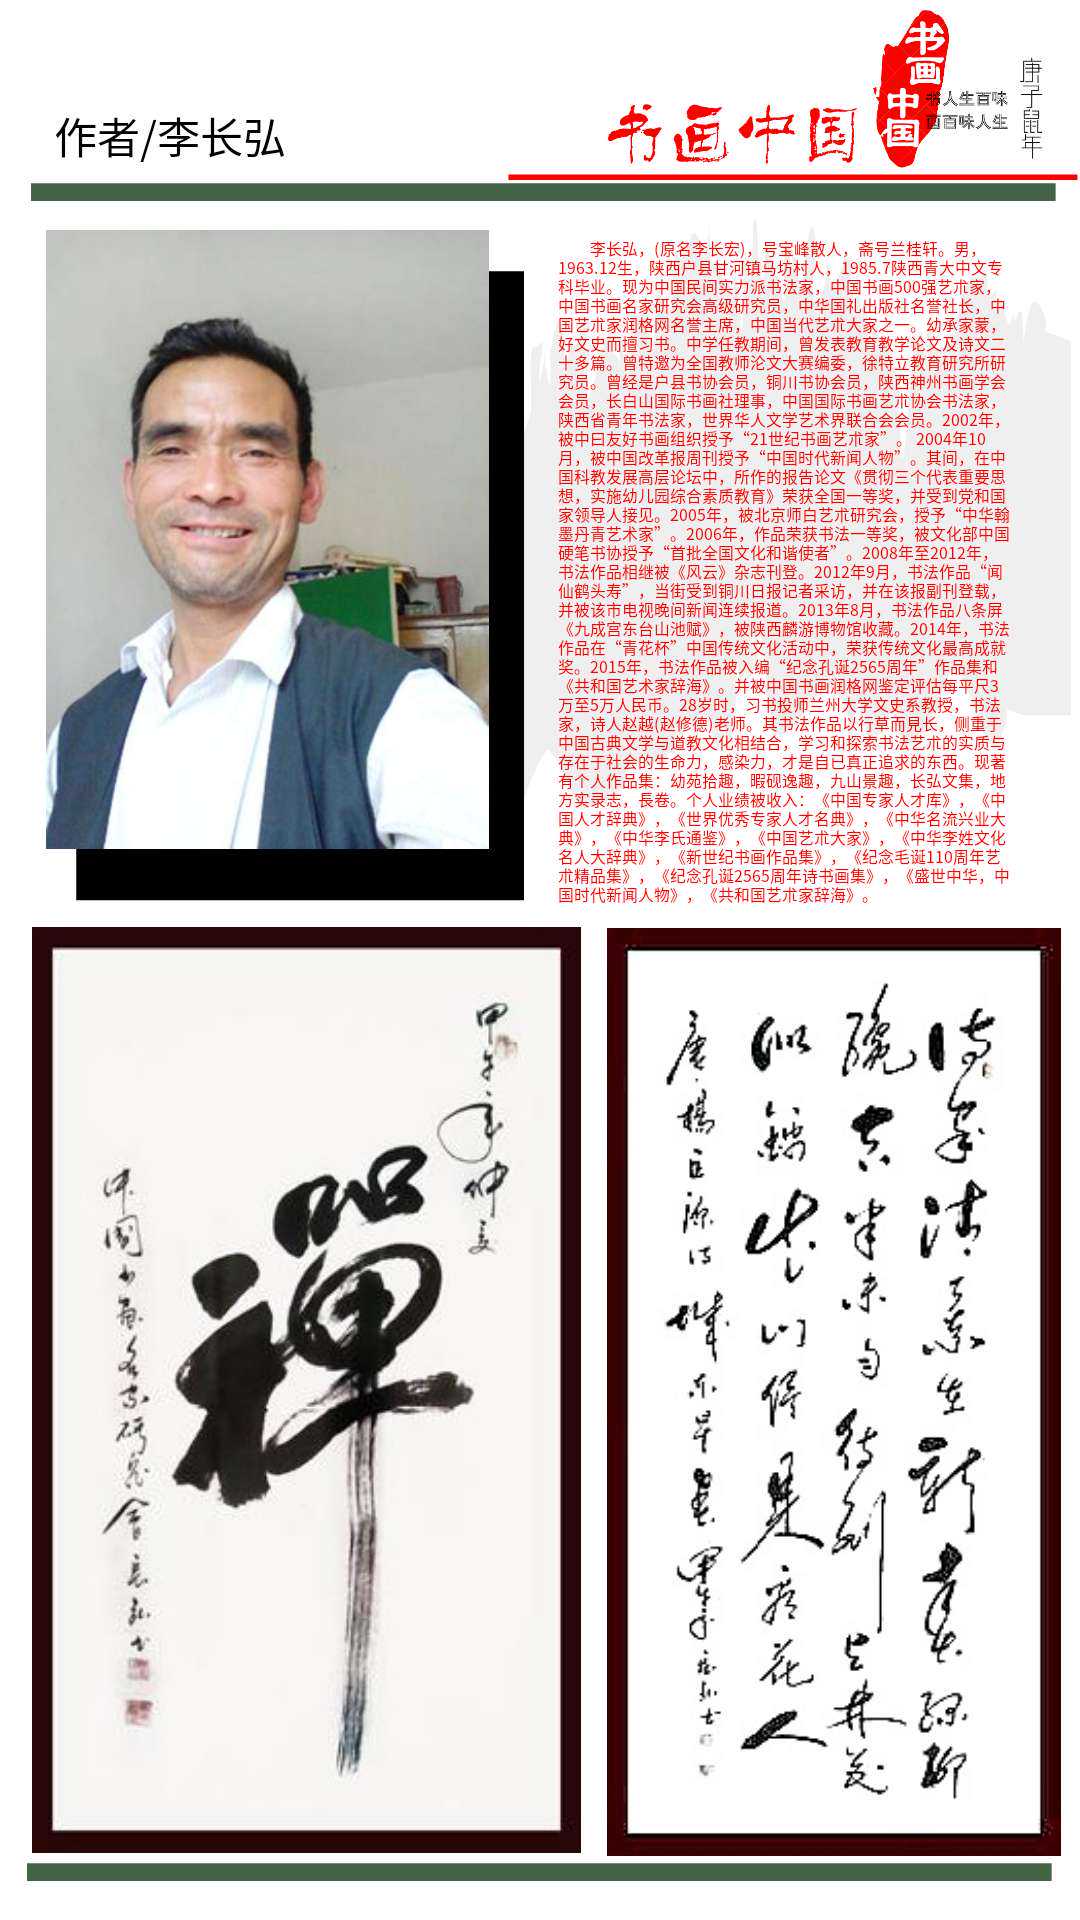 作者/李长弘
书画中国
书画中国
书人生百味
画百味人生
庚子鼠年
李长弘，(原名李长宏)，号宝峰散人，斋号兰桂轩。男，
1963.12生，陕西户县甘河镇马坊村人，1985.7陕西青大中文专
科毕业。现为中国民间实力派书法家，中国书画500强艺术家，
中国书画名家研究会高级研究员，中华国礼出版社名誉社长，中
国艺术家润格网名誉主席，中国当代艺术大家之一。幼承家蒙，
好文史而擅习书。中学任教期间，曾发表教育教学论文及诗文二
十多篇。曾特邀为全国教师沦文大赛编委，徐特立教育研究所研
究员。曾经是户县书协会员，铜川书协会员，陕西神州书画学会
会员，长白山国际书画社理事，中国国际书画艺术协会书法家，
陕西省青年书法家，世界华人文学艺术界联合会会员。2002年，
被中曰友好书画组织授予“21世纪书画艺术家”。 2004年10
月，被中国改革报周刊授予“中国时代新闻人物”。其间，在中
国科教发展高层论坛中，所作的报告论文《贯彻三个代表重要思
想，实施幼儿园综合素质教育》荣获全国一等奖，并受到党和国
家领导人接见。2005年，被北京师白艺术研究会，授予“中华翰
墨丹青艺术家”。2006年，作品荣获书法一等奖，被文化部中国
硬笔书协授予“首批全国文化和谐使者”。2008年至2012年，
书法作品相继被《风云》杂志刊登。2012年9月，书法作品“闻
仙鹤头寿”，当街受到铜川日报记者采访，并在该报副刊登载，
并被该市电视晚间新闻连续报道。2013年8月，书法作品八条屏
《九成宫东台山池赋》，被陕西麟游博物馆收藏。2014年，书法
作品在“青花杯”中国传统文化活动中，荣获传统文化最高成就
奖。2015年，书法作品被入编“纪念孔诞2565周年”作品集和
《共和国艺术家辞海》。并被中国书画润格网鉴定评估每平尺3
万至5万人民币。28岁时，习书投师兰州大学文史系教授，书法
家，诗人赵越(赵修德)老师。其书法作品以行草而見长，侧重于
中国古典文学与道教文化相结合，学习和探索书法艺术的实质与
存在于社会的生命力，感染力，才是自已真正追求的东西。现著
有个人作品集：幼苑拾趣，暇砚逸趣，九山景趣，长弘文集，地
方实录志，長卷。个人业绩被收入：《中国专家人才库》，《中
国人才辞典》，《世界优秀专家人才名典》，《中华名流兴业大
典》，《中华李氏通鉴》，《中国艺术大家》，《中华李姓文化
名人大辞典》，《新世纪书画作品集》，《纪念毛诞110周年艺
术精品集》，《纪念孔诞2565周年诗书画集》，《盛世中华，中
国时代新闻人物》，《共和国艺术家辞海》。
甲午年仲夏
禪
中国书画名家研究会長弘书
诗家清景在新春绿柳
才黄半未匀待到上林花
似锦出门俱是看花人
唐楊巨源诗城东早春甲午年長弘书